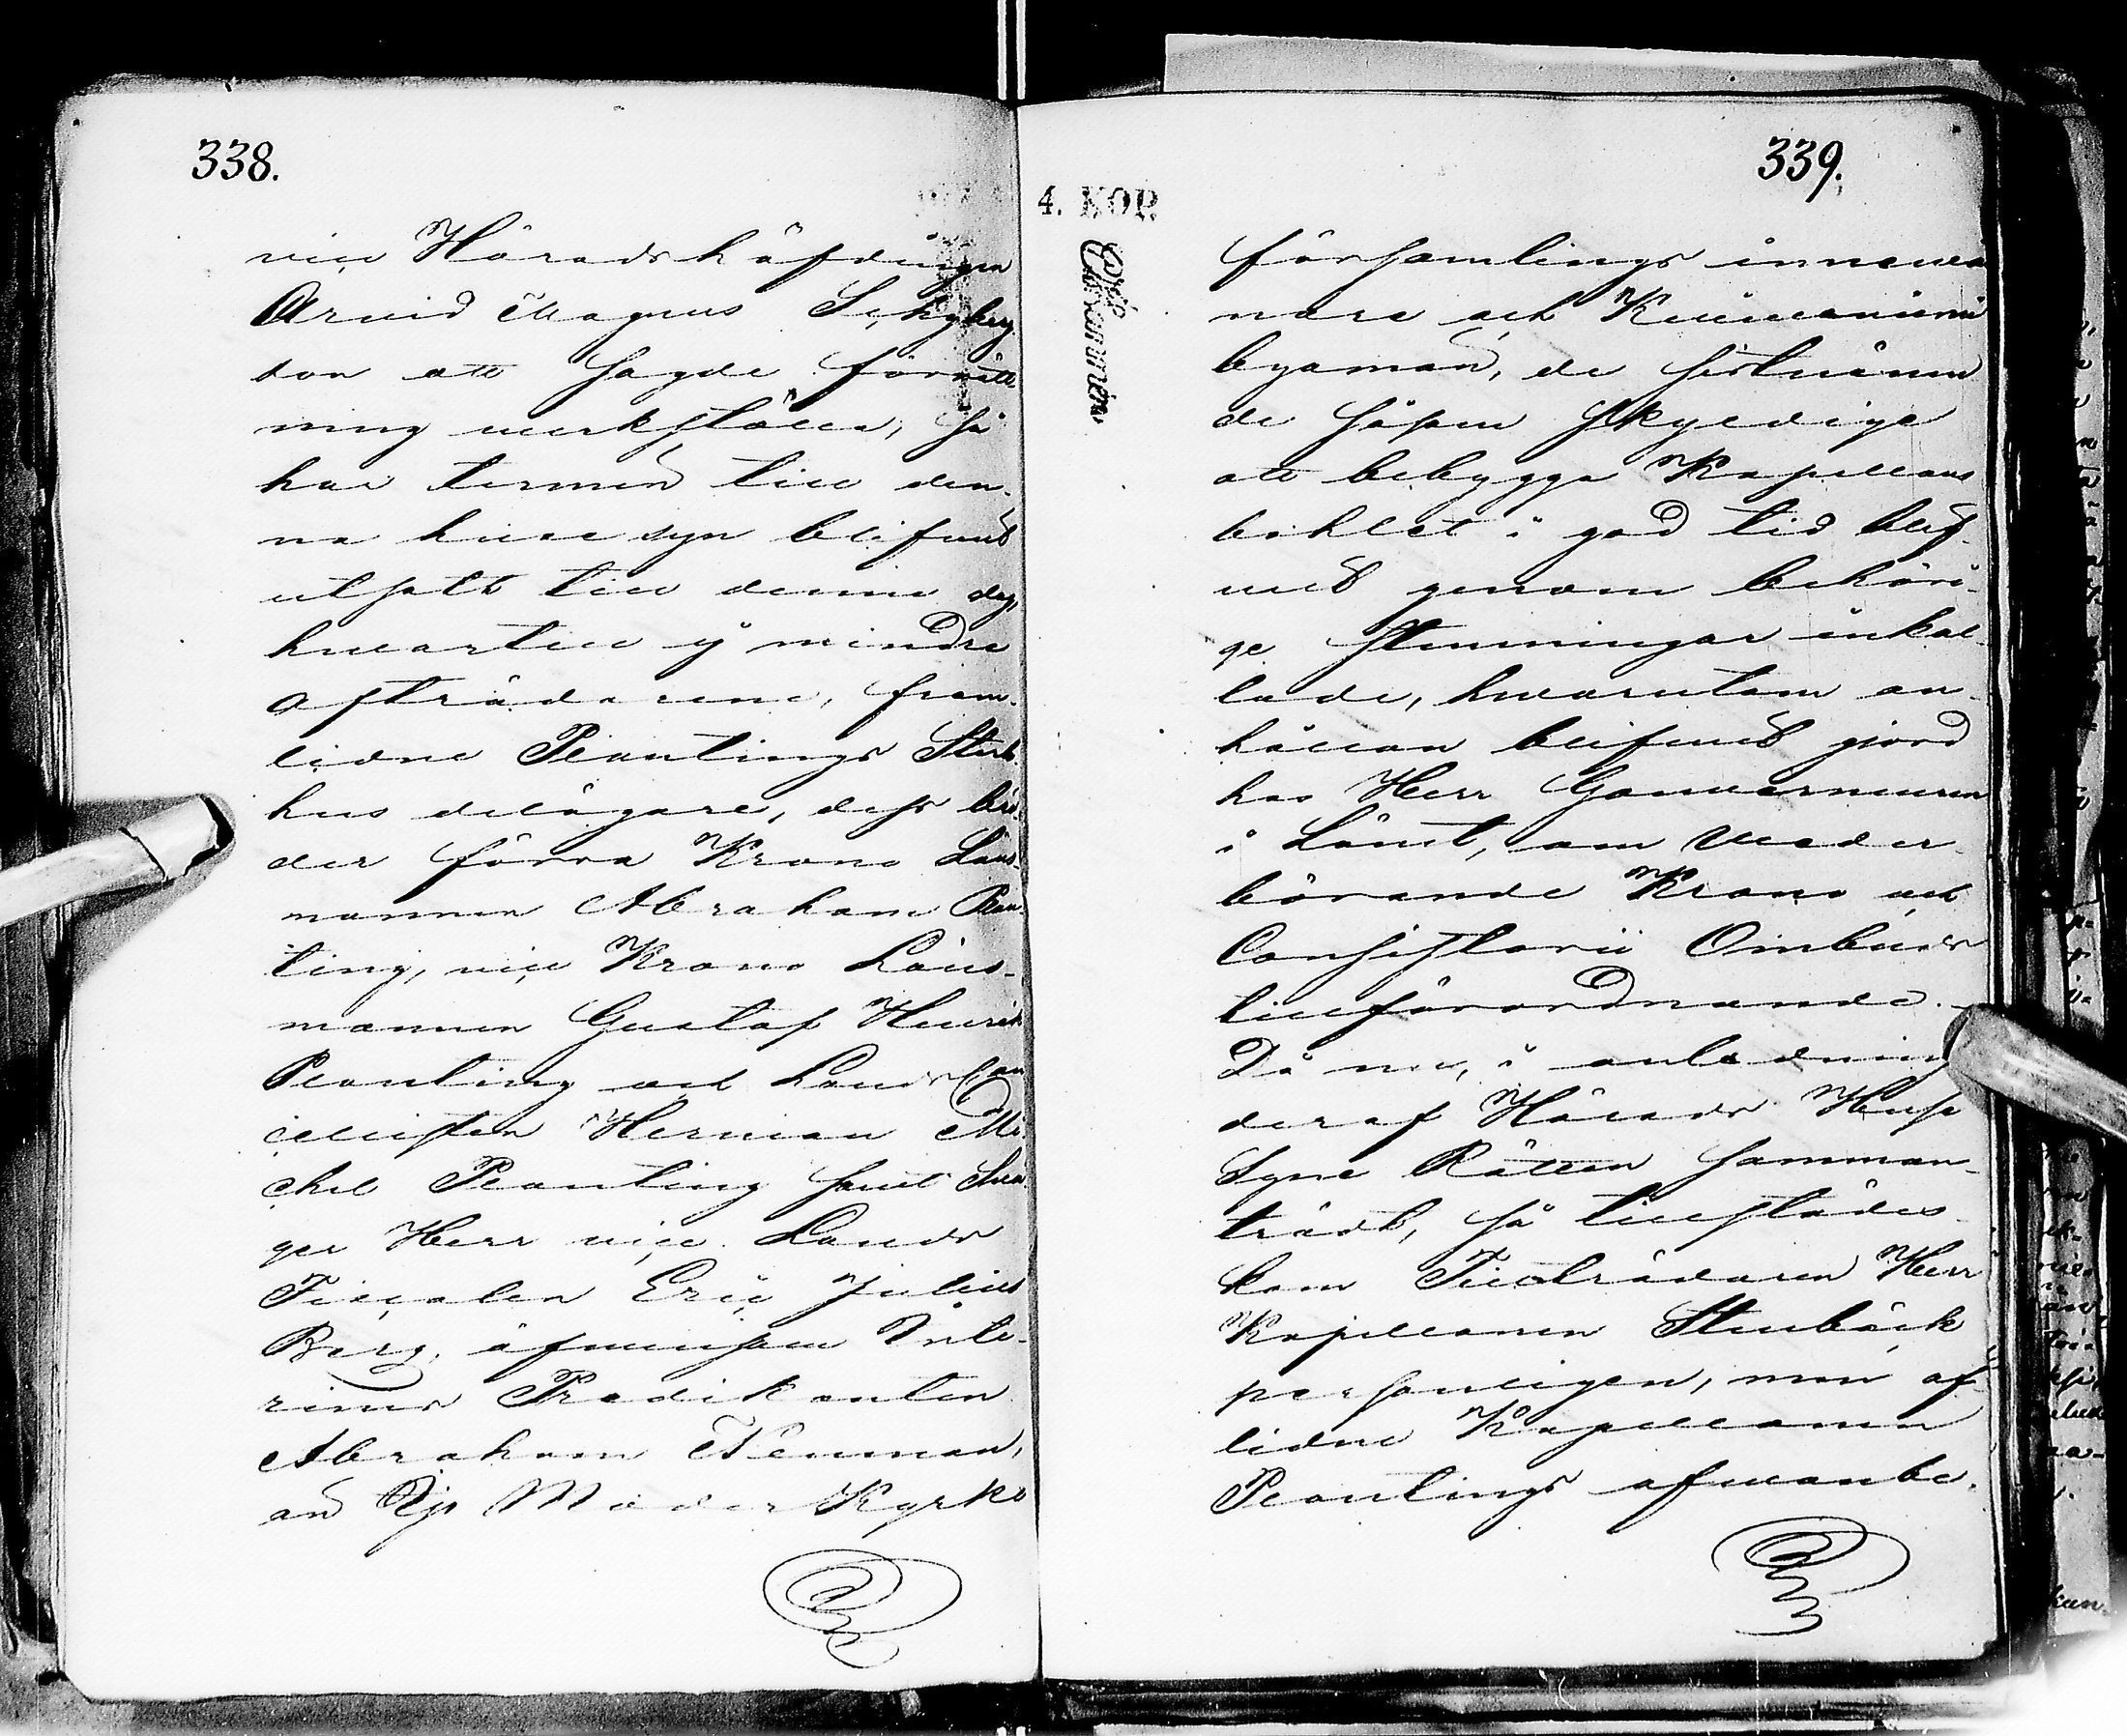 338.
vice Häradshöfdingen
Arvid Magnus
ton att sagde förrätt-
ning verkställa, så
har termin till den-
na huse syn blifvit
utsatt till denne dag,
hvartill ej mindre
afträdarene, fram-
lidne Plantings Sterb-
hus delägare, dess brö-
der förra Krono Läns-
mannen Abraham Plan-
ting, vice Krono Läns-
mannen Gustaf Henrik
Planting och Lands Can-
cellisten Herman Mi-
chel Planting samt Svå-
ger Herr vice Lands
Fiscalen Eric Julius
Berg, äfvensom Inte-
rims Predikanten
Abraham Neuman,
än Moder Kyrko
4. KOP.
339.
församlings innevå-
nare och
byamän, de sistnämn-
de såsom skyldige
att bebygga Kapellans
bohlet i god tid blif-
vit genom behöri-
ge stämningar inkal-
lade, hvarutom an-
hållan blifvit gjord
hos Herr Gouverneuren
i Länet, om veder-
börande Krono och
Consistorii Ombuds
tillförordnande.
Då nu, i anledning
deraf Härads Huse
Syne Rätten samman-
trädt, så tillstädes
kom Tillträdaren Herr
Kapellanen Stenbäck
personligen, men af-
lidne Kapellanen
Plantings ofvanbe-